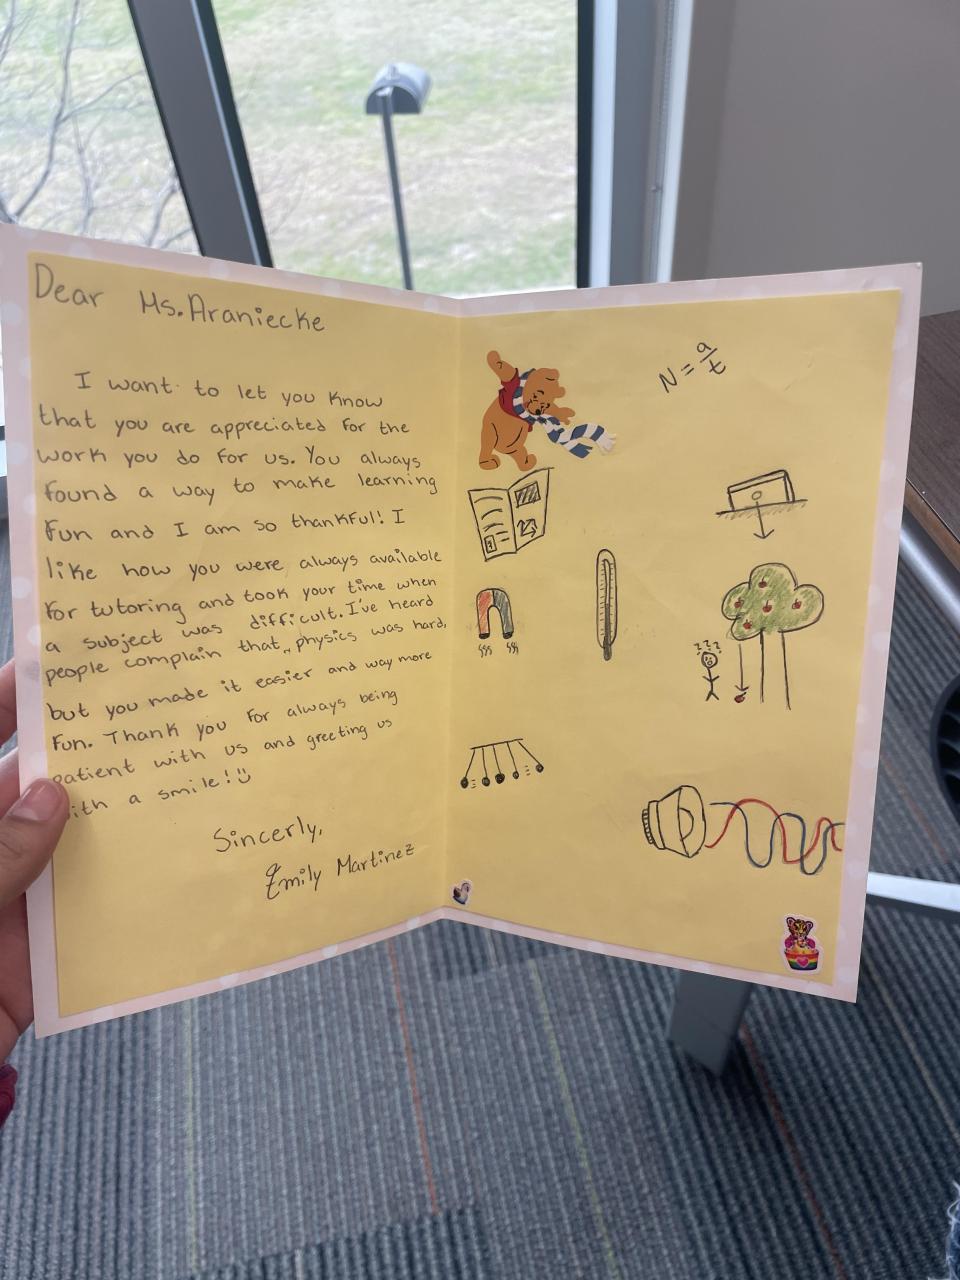 Dear Ms. Araniecke
I want to let you know
that you are appreciated for the
work you do for us. You always
found a way to make learning
fun and I am so thankful! I
like how you were always available
for tutoring and took your time when
a subject was difficult. I've heard
people complain that physics was hard,
but you made it easier and way more
fun. Thank you for always being
patient with us and greeting us
with a smile!
Sincerly,
Emily Martinez
N = a/t
???